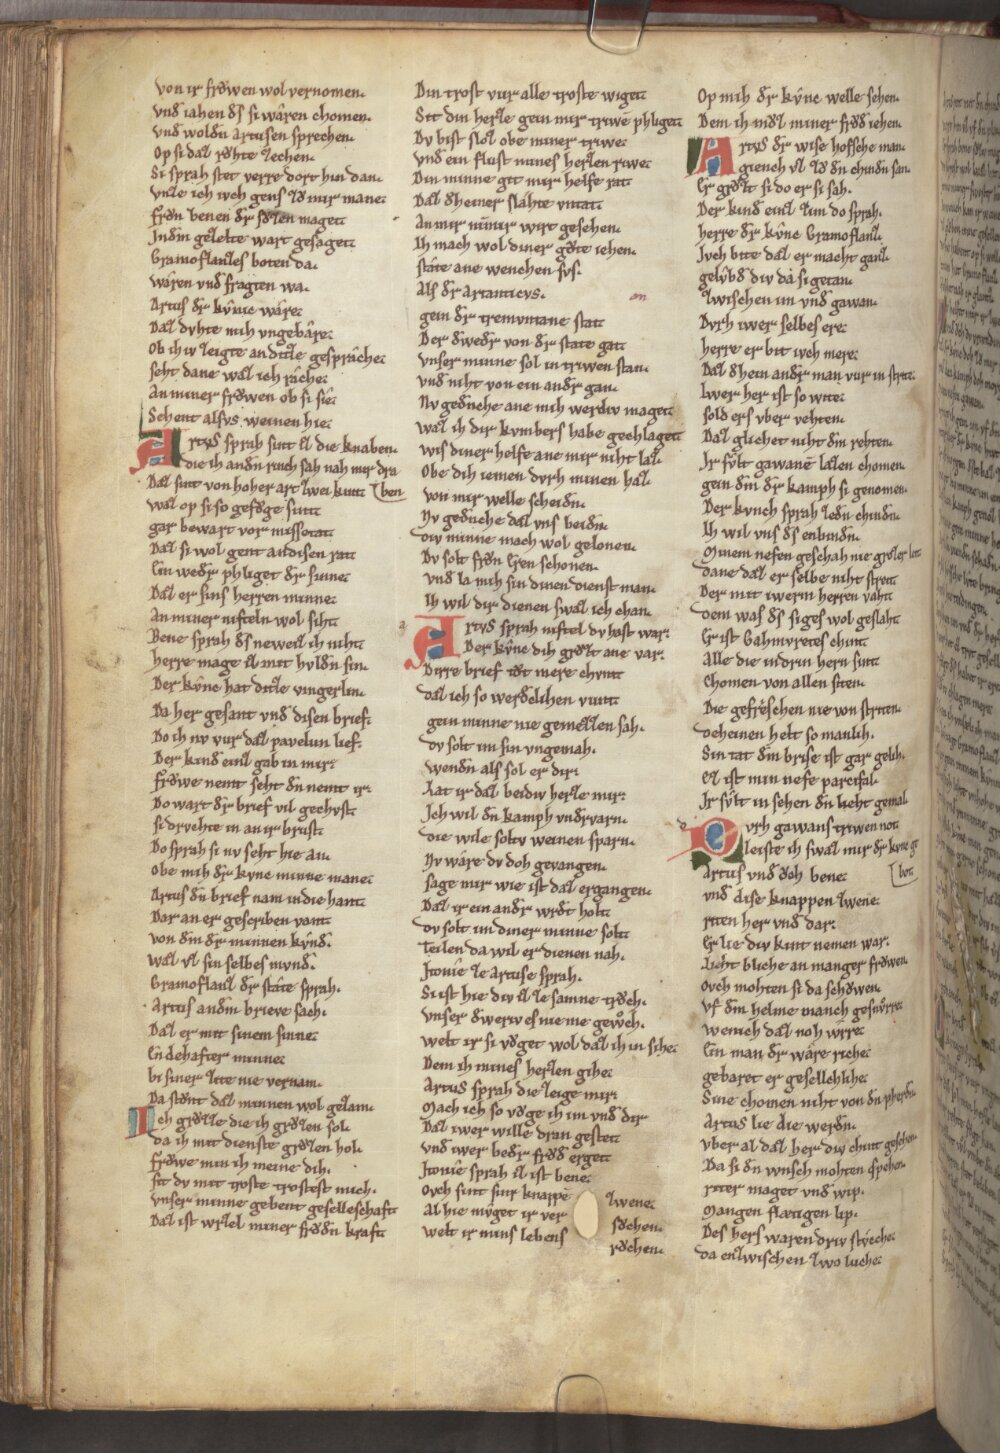 von ir frowen wol vernomen.
vnd iahen ds si wâren chomen.
vnd woldn artusen sprechen.
Op si daz rehte zechen.
Si sprah stet verre dort hin dan.
vnze ich iveh gens zo mir mane
frôn benen dr sozen magett
Indem gezelte wart gesagett
Gramoflanzes boten da.
wâren vnd fragten wa.
Artus dr kûnic wâre
Daz dvhte mih vngebâre
Ob ih iv zeigte an ditze gesprâche
seht dane waz ich râche
An miner frowen ob si sie
Sehent alsvs weinen hie
Artvs sprah sint ez die knaben.
die ih andn rinch sah nah mir dra
Daz sint von hoher art zwei kint [ben
waz op si so gefoge sint
gar bewart vor missetat
Daz si wol gent andisen rat
Ein wedr phliget dr sinne
Daz er sins herren minne
An miner nifteln wol siht
Bene sprah ds neweiz ih niht
herre mage ez mit hvldn sin.
Der kûnc hat ditze vingerlin.
Da her gesant vnd disen brief.
Do ih nv vur daz pavelun lief.
Der kind einz gab in mir
frowe nemt seht dn nemt ir.
Do wart dr brief vil gechvst
si drvchte in an ir brust
Do sprah si nv seht hie an.
Obe mih dr kvnc minne mane
Artus dn brief nam in die hant
Dar an er gescriben vant
von dm dr minnen kvnd.
waz vz sin selbes mvnd.
Gramoflanz dr stâte sprah.
Artus andm brieve sach.
Daz er mit sinem sinne
Endehafter minne
bi siner zite nie vernam.
Da stônt daz minnen wol gezam.
Ich grôzze die ih grôzen sol.
da ih mit dienste grôzen hol.
frôwe min ih meine dih.
sit dv mit troste trostest mich.
vnser minne gebent geselleschaft
Daz ist wrzel miner frôdn kraft
Din trost vur alle troste wigett
Sit din herze gein mir triwe phligett
Dv bist sloz obe miner triwe
vnd ein flust mines herzen riwe
Din minne git mir helfe rat
Daz dheiner slahte vntat
An mir nimir wirt gesehen.
Ih mach wol diner gôte iehen.
stâte ane wenchen svs.
als dr artanticvs.
gein dr tremvntane stat
Der dwedr von dr state gat
vnser minne sol in triwen stan.
vnd niht von ein andr gan.
Nv gednche ane mih werdiv magett
waz ich dir kvmbers habe gechlagett
wis diner helfe ane mir niht laz.
Obe dih iemen dvrh minen haz
von mir welle scheidn.
Nv gednche daz vns beidn
div minne mach wol gelonen.
Dv solt frôn Eren schonen.
vnd la mih sin dinen dienst man.
Ih wil dir dienen swaz ich chan.
Artvs sprah niftel dv hast war.
Der kûnc dih grôzt ane var.
Dirre brief tôt mere chvnt
daz ich so werdechlichen vunt
gein minne nie gemezzen sah.
dv solt im sin vngemah.
wendn als sol er dir
Lat ir daz beidiv herze mir
Ich wil dn kamph vndrvarn.
die wile soltv weinen sparn.
Nv wâre dv doh gevangen.
sage mir wie ist daz ergangen.
Daz ir ein andr wrdt holt
dv solt im diner minne solt
Teilen da wil er dienen nah.
Itonie ze Artuse sprah.
Si ist hie div ez ze samne trôch.
vnser dwerves nie me gewôch.
welt ir si vôget wol daz ih in sihe
Dem ih mines herzen gihe
Artus sprah die zeige mir
Mach ich so vôge ih im vnd dir
Daz iwer wille dran gestett
vnd iwer bedr frôd ergett
Itonie sprah ez ist bene
Ovch sint sinr knappe zwene.
Al hie mvget ir ver sôchen.
welt ir mins lebens rôchen.
Op mih dr kûnc welle sehen.
Dem ih mvz miner frôd iehen.
Artvs dr wise hofsche man.
giench vz zo dn chindn san
Er grôzt si do er si sah.
Der kind einz zim do sprah.
herre dr kûnc Gramoflanz.
Ivch bite daz er macht ganz.
gelvbd div dâ si getan.
zwischen im vnd gawan.
Dvrh iwer selbes ere
herre er bit iveh mere
Daz dhein andr man vur in strite
Iwer her ist so wite
sold ers vber vehten.
Daz glichet niht dm rehten
Ir svlt gawane lazen chomen.
gein dm dr kamph si genomen.
Der kvnch sprah zedn chindn.
Ih wil vns ds enbindn.
Minem nefen geschah nie grozer leit
dane daz er selbe niht streit
Der mit iwerm herren vaht
dem was ds siges wol geslaht
Er ist Gahmvretes chint
Alle die indrin hern sint
Chomen von allen siten.
Die gefrêschen nie von striten.
deheinen helt so manlih.
Sin tat dm brise ist gar gelih.
ez ist min nefe parcifal.
Ir svlt in sehen dn lieht gemal
Dvrh gawans triwen not
leiste ih swaz mir dr kvnc ge
Artus vnd ôch bene [bot
vnd dise knappen zwene
riten her vnd dar
Er lie div kint nemen war.
Liht bliche an manger frôwen.
Ovch mohten si da schôwen.
vf dm helme manch gesnvrre
wenich daz noh wirre
Ein man dr wâre riche
gebaret er gesellchliche
Sine chomen niht von dn pherdn
Artus lie die werdn.
vber al daz her div chint gesehen
Da si dn wnsch mohten spehen
riter maget vnd wip.
Mangen flatigen lip.
Des hers waren driv stvche
da enzwischen zwo luche